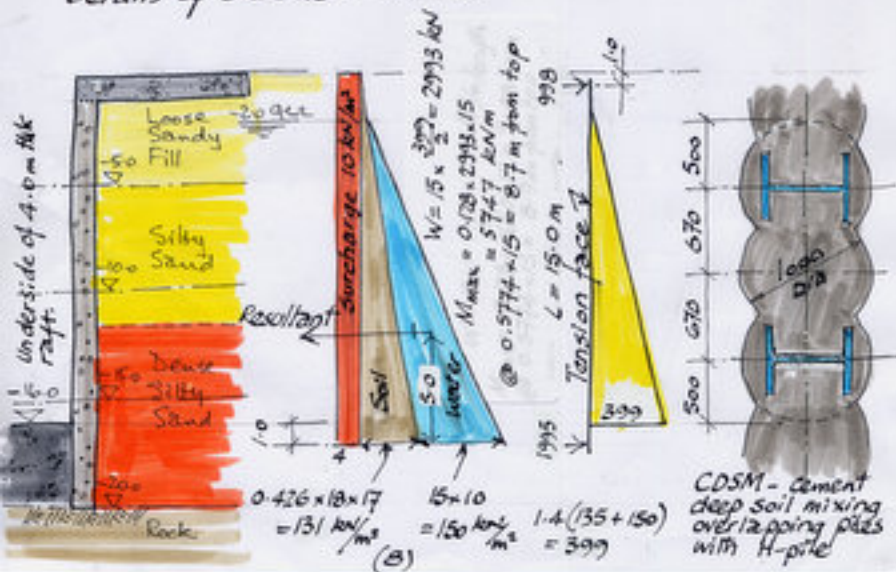 Details of
Underside of 4.0 m thk
raft.
-16.0
Loose
Sandy
Fill
-2.0 GWL
-5.0
Silty
Sand
-10.0
Resultant
Dense
Silty
Sand
-15.0
-20.0
Rock
1.0
Surcharge 10 kN/m²
Soil
Water
5.0
4
0.426×18×17
= 131 kN/m³
15×10
= 150 kN/m²
(8)
W = 15 × 399/2 = 2993 kN
Mmax = 0.128×2993×15
= 5747 kNm
@ 0.5774×15 = 8.7 m from top
998
1.0
L = 15.0 m
Tension face
1995
399
1.4(135+150)
= 399
500
670
670
500
1000
DIA
CDSM - cement
deep soil mixing
overlapping piles
with H-pile